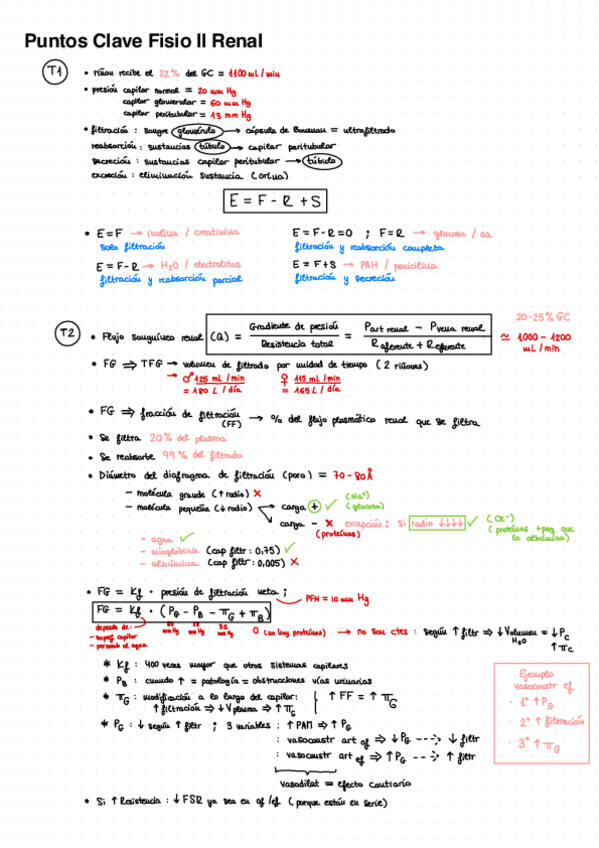 Puntos Clave Fisio II Renal
T1
• riñon recibe el 22% del GC = 1100 mL/min
• presión capilar normal = 20 mm Hg
capilar glomerular = 60 mm Hg
capilar peritubular = 13 mm Hg
• filtración : sangre glomérulo → cápsula de Bowman = ultrafiltrado
reabsorción : sustancias túbulo → capilar peritubular
secreción : sustancias capilar peritubular → túbulo
excreción : eliminación sustancia (orina)
E = F - R + S
• E = F → inulina / creatinina
solo filtración
E = F - R = 0 ; F = R → glucosa / aa
filtración y reabsorción completa
E = F - R → H₂O / electrolitos
filtración y reabsorción parcial
E = F + S → PAH / penicilina
filtración y secreción
T2
20-25% GC
• Flujo sanguíneo renal (Q) = Gradiente de presión / Resistencia total = P art renal - P vena renal / R aferente + R eferente ≃ 1000 - 1200 mL/min
• FG ⇒ TFG → volumen de filtrado por unidad de tiempo (2 riñones)
→ ♂ 125 mL/min ♀ 115 mL/min
= 180 L/día = 165 L/día
• FG ⇒ fracción de filtración (FF) → % del flujo plasmático renal que se filtra
• Se filtra 20% del plasma
• Se reabsorbe 99% del filtrado
• Diámetro del diafragma de filtración (poro) = 70-80Å
- molécula grande (↑ radio) ✗
- molécula pequeña (↓ radio) → carga + ✓ (Na⁺) (glucosa)
carga - ✗ excepción: si radio ↓↓↓↓ ✓ (Cl⁻)
(proteínas) (proteínas + peq que la albúmina)
- agua ✓
- mioglobina (cap filtr : 0,75) ✓
- albúmina (cap filtr : 0,005) ✗
• FG = Kf · presión de filtración neta ; PFN = 10 mm Hg
FG = Kf · (P_G - P_B - π_G + π_B)
depende de :
- superf capilar
- permeab al agua
60 mm Hg 18 mm Hg 32 mm Hg 0 (no hay proteínas) → no son ctes : según ↑ filtr ⇒ ↓ Volumen H₂O = ↓ P_C
↑ π_C
* Kf : 400 veces mayor que otros sistemas capilares
* P_B : cuando ↑ = patología = obstrucciones vías urinarias
* π_G : modificación a lo largo del capilar: | ↑ FF = ↑ π_G
↑ filtración ⇒ ↓ V plasma ⇒ ↑ π_C
* P_G : ↓ según ↑ filtr ; 3 variables : ↑ PAM ⇒ ↑ P_G
: vasoconstr art af ⇒ ↓ P_G ---> ↓ filtr
: vasoconstr art ef ⇒ ↑ P_G ---> ↑ filtr
vasodilat = efecto contrario
Ejemplo
vasoconstr ef
· 1º ↑ P_G
· 2º ↑ filtración
· 3º ↑ π_G
• Si ↑ Resistencia : ↓ FSR ya sea en af/ef (porque están en serie)